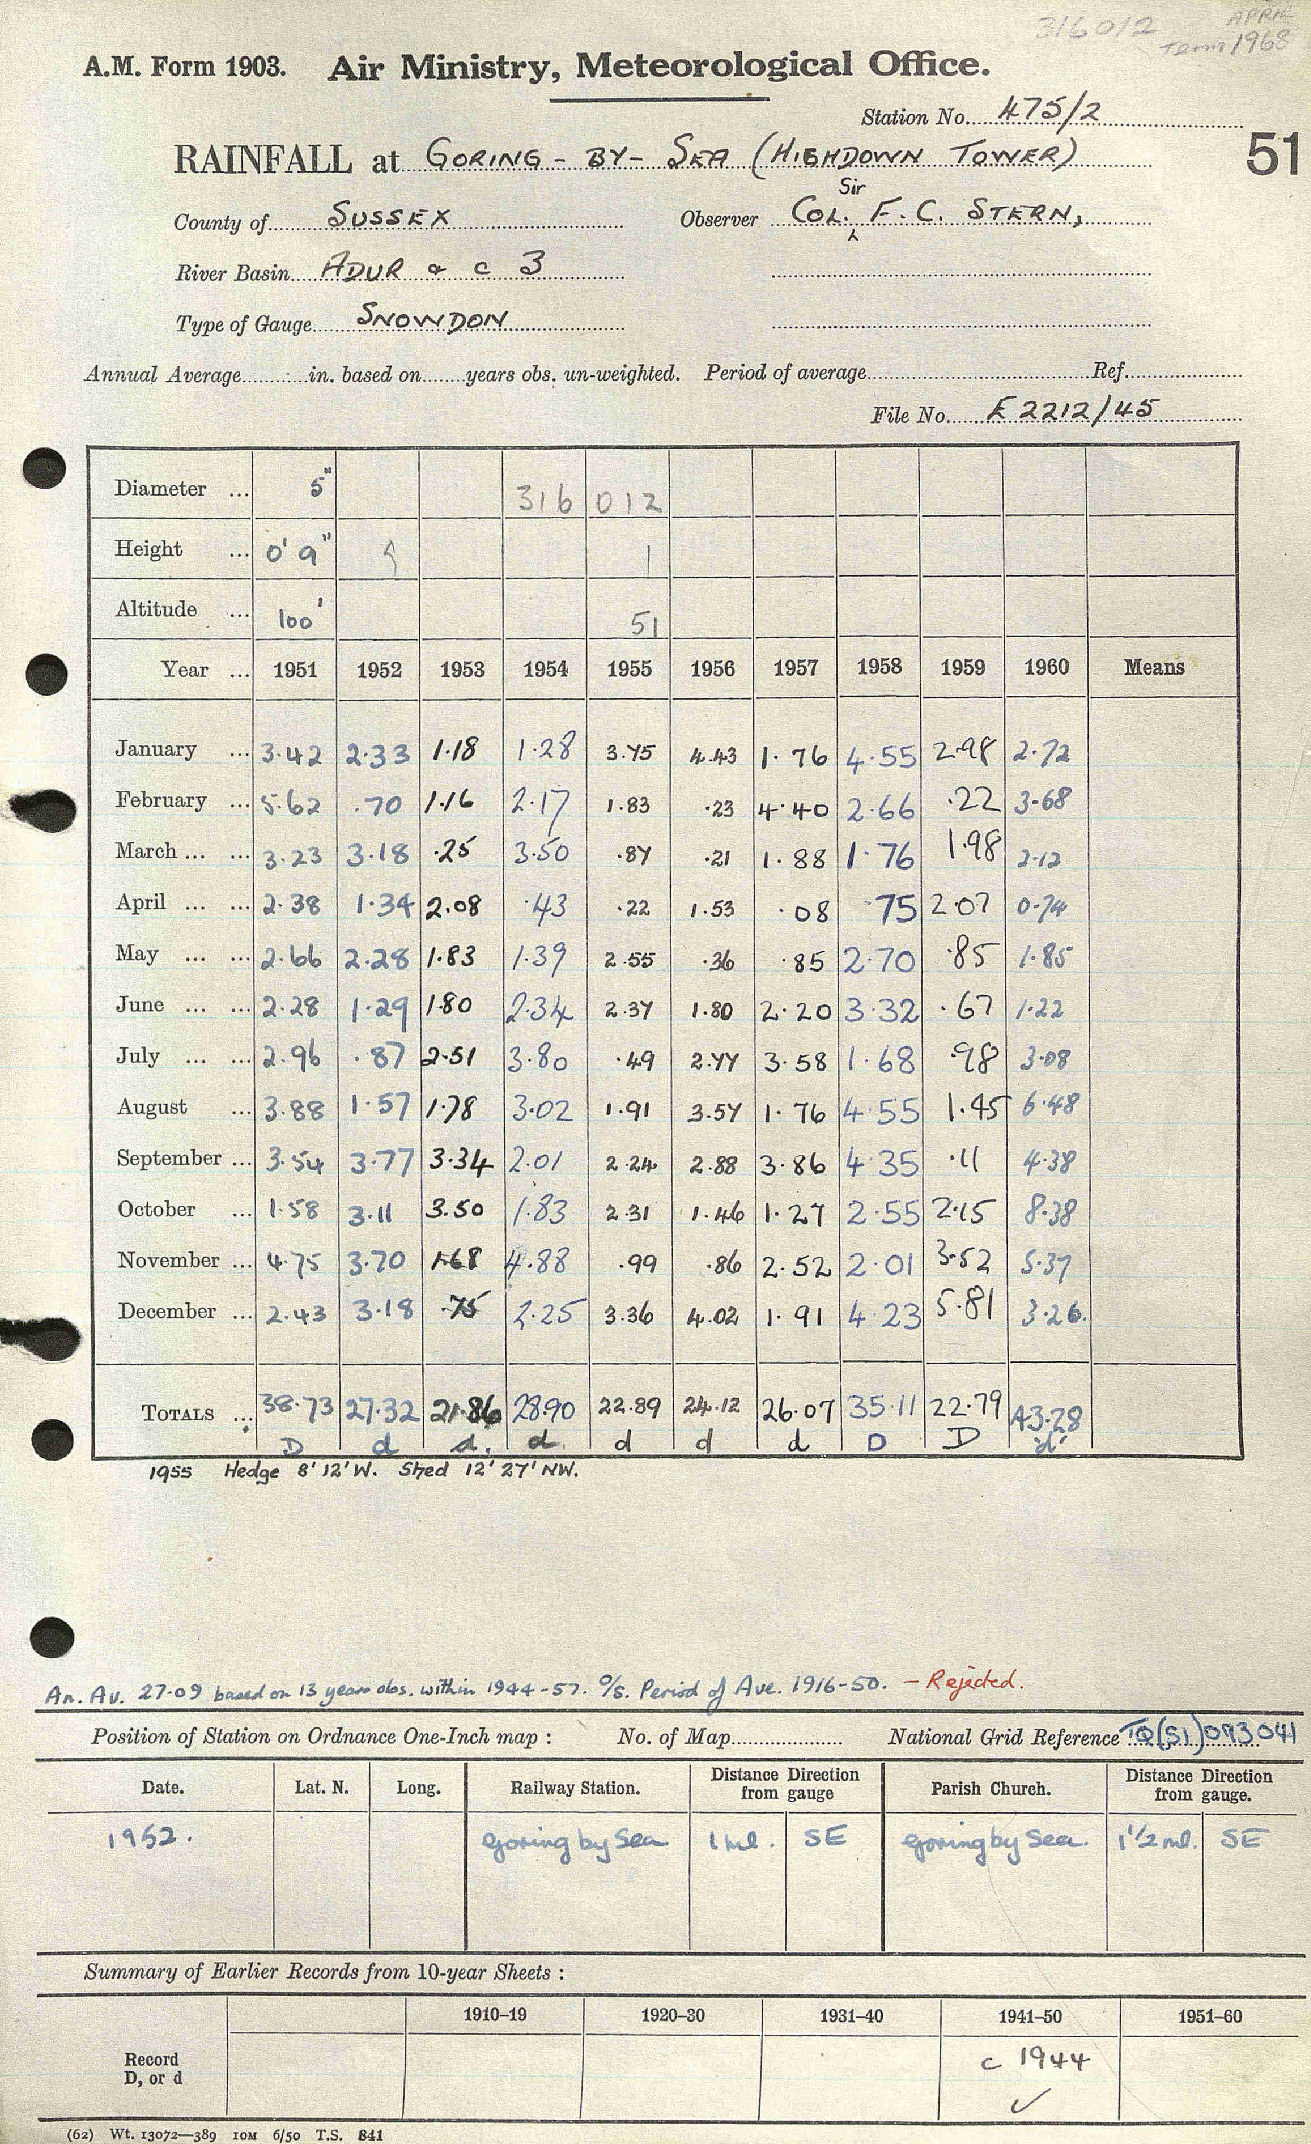 316012 APRIL
Term 1968
A.M. Form 1903. Air Ministry, Meteorological Office.
Station No. 475/2
RAINFALL at GORING-BY-SEA (HIGHDOWN TOWER) 51
Sir
County of SUSSEX Observer COL. F. C. STERN,
River Basin ADUR & C 3
Type of Gauge SNOWDON
Annual Average in. based on years obs. un-weighted. Period of average Ref.
File No. E2212/45
Diameter ... 5" 316 012
Height ... 0' 9" 1
Altitude ... 100' 51
Year ... 1951 1952 1953 1954 1955 1956 1957 1958 1959 1960 Means
January ... 3.42 2.33 1.18 1.28 3.75 4.43 1.76 4.55 2.98 2.72
February ... 5.62 .70 1.16 2.17 1.83 .23 4.40 2.66 .22 3.68
March ... ... 3.23 3.18 .25 3.50 .87 .21 1.88 1.76 1.98 2.12
April ... ... 2.38 1.34 2.08 .43 .22 1.53 .08 .75 2.07 0.74
May ... ... 2.66 2.28 1.83 1.39 2.55 .36 .85 2.70 .85 1.85
June ... ... 2.28 1.29 1.80 2.34 2.37 1.80 2.20 3.32 .67 1.22
July ... ... 2.96 .87 2.51 3.80 .49 2.77 3.58 1.68 .98 3.08
August ... 3.88 1.57 1.78 3.02 1.91 3.57 1.76 4.55 1.45 6.48
September ... 3.54 3.77 3.34 2.01 2.24 2.88 3.86 4.35 .11 4.38
October ... 1.58 3.11 3.50 1.83 2.31 1.46 1.27 2.55 2.15 8.38
November ... 4.75 3.70 1.68 4.88 .99 .86 2.52 2.01 3.52 5.37
December ... 2.43 3.18 .75 2.25 3.36 4.02 1.91 4.23 5.81 3.26.
TOTALS ... 38.73 27.32 21.86 28.90 22.89 24.12 26.07 35.11 22.79 43.28
D d d. d. d d d D D d
1955 Hedge 8' 12' W. Shed 12' 27' NW.
An. Av. 27.09 based on 13 years obs. within 1944-57. %s. Period of Ave. 1916-50. - Rejected.
Position of Station on Ordnance One-Inch map : No. of Map National Grid Reference TQ(51)093041
Date. Lat. N. Long. Railway Station. Distance Direction from gauge Parish Church. Distance Direction from gauge.
1952. Goring by Sea 1 ml. SE Goring by Sea. 1 1/2 ml. SE
Summary of Earlier Records from 10-year Sheets :
1910–19 1920–30 1931–40 1941–50 1951–60
Record
D, or d
c 1944
✓
(62) Wt. 13072—389 10M 6/50 T.S. 841